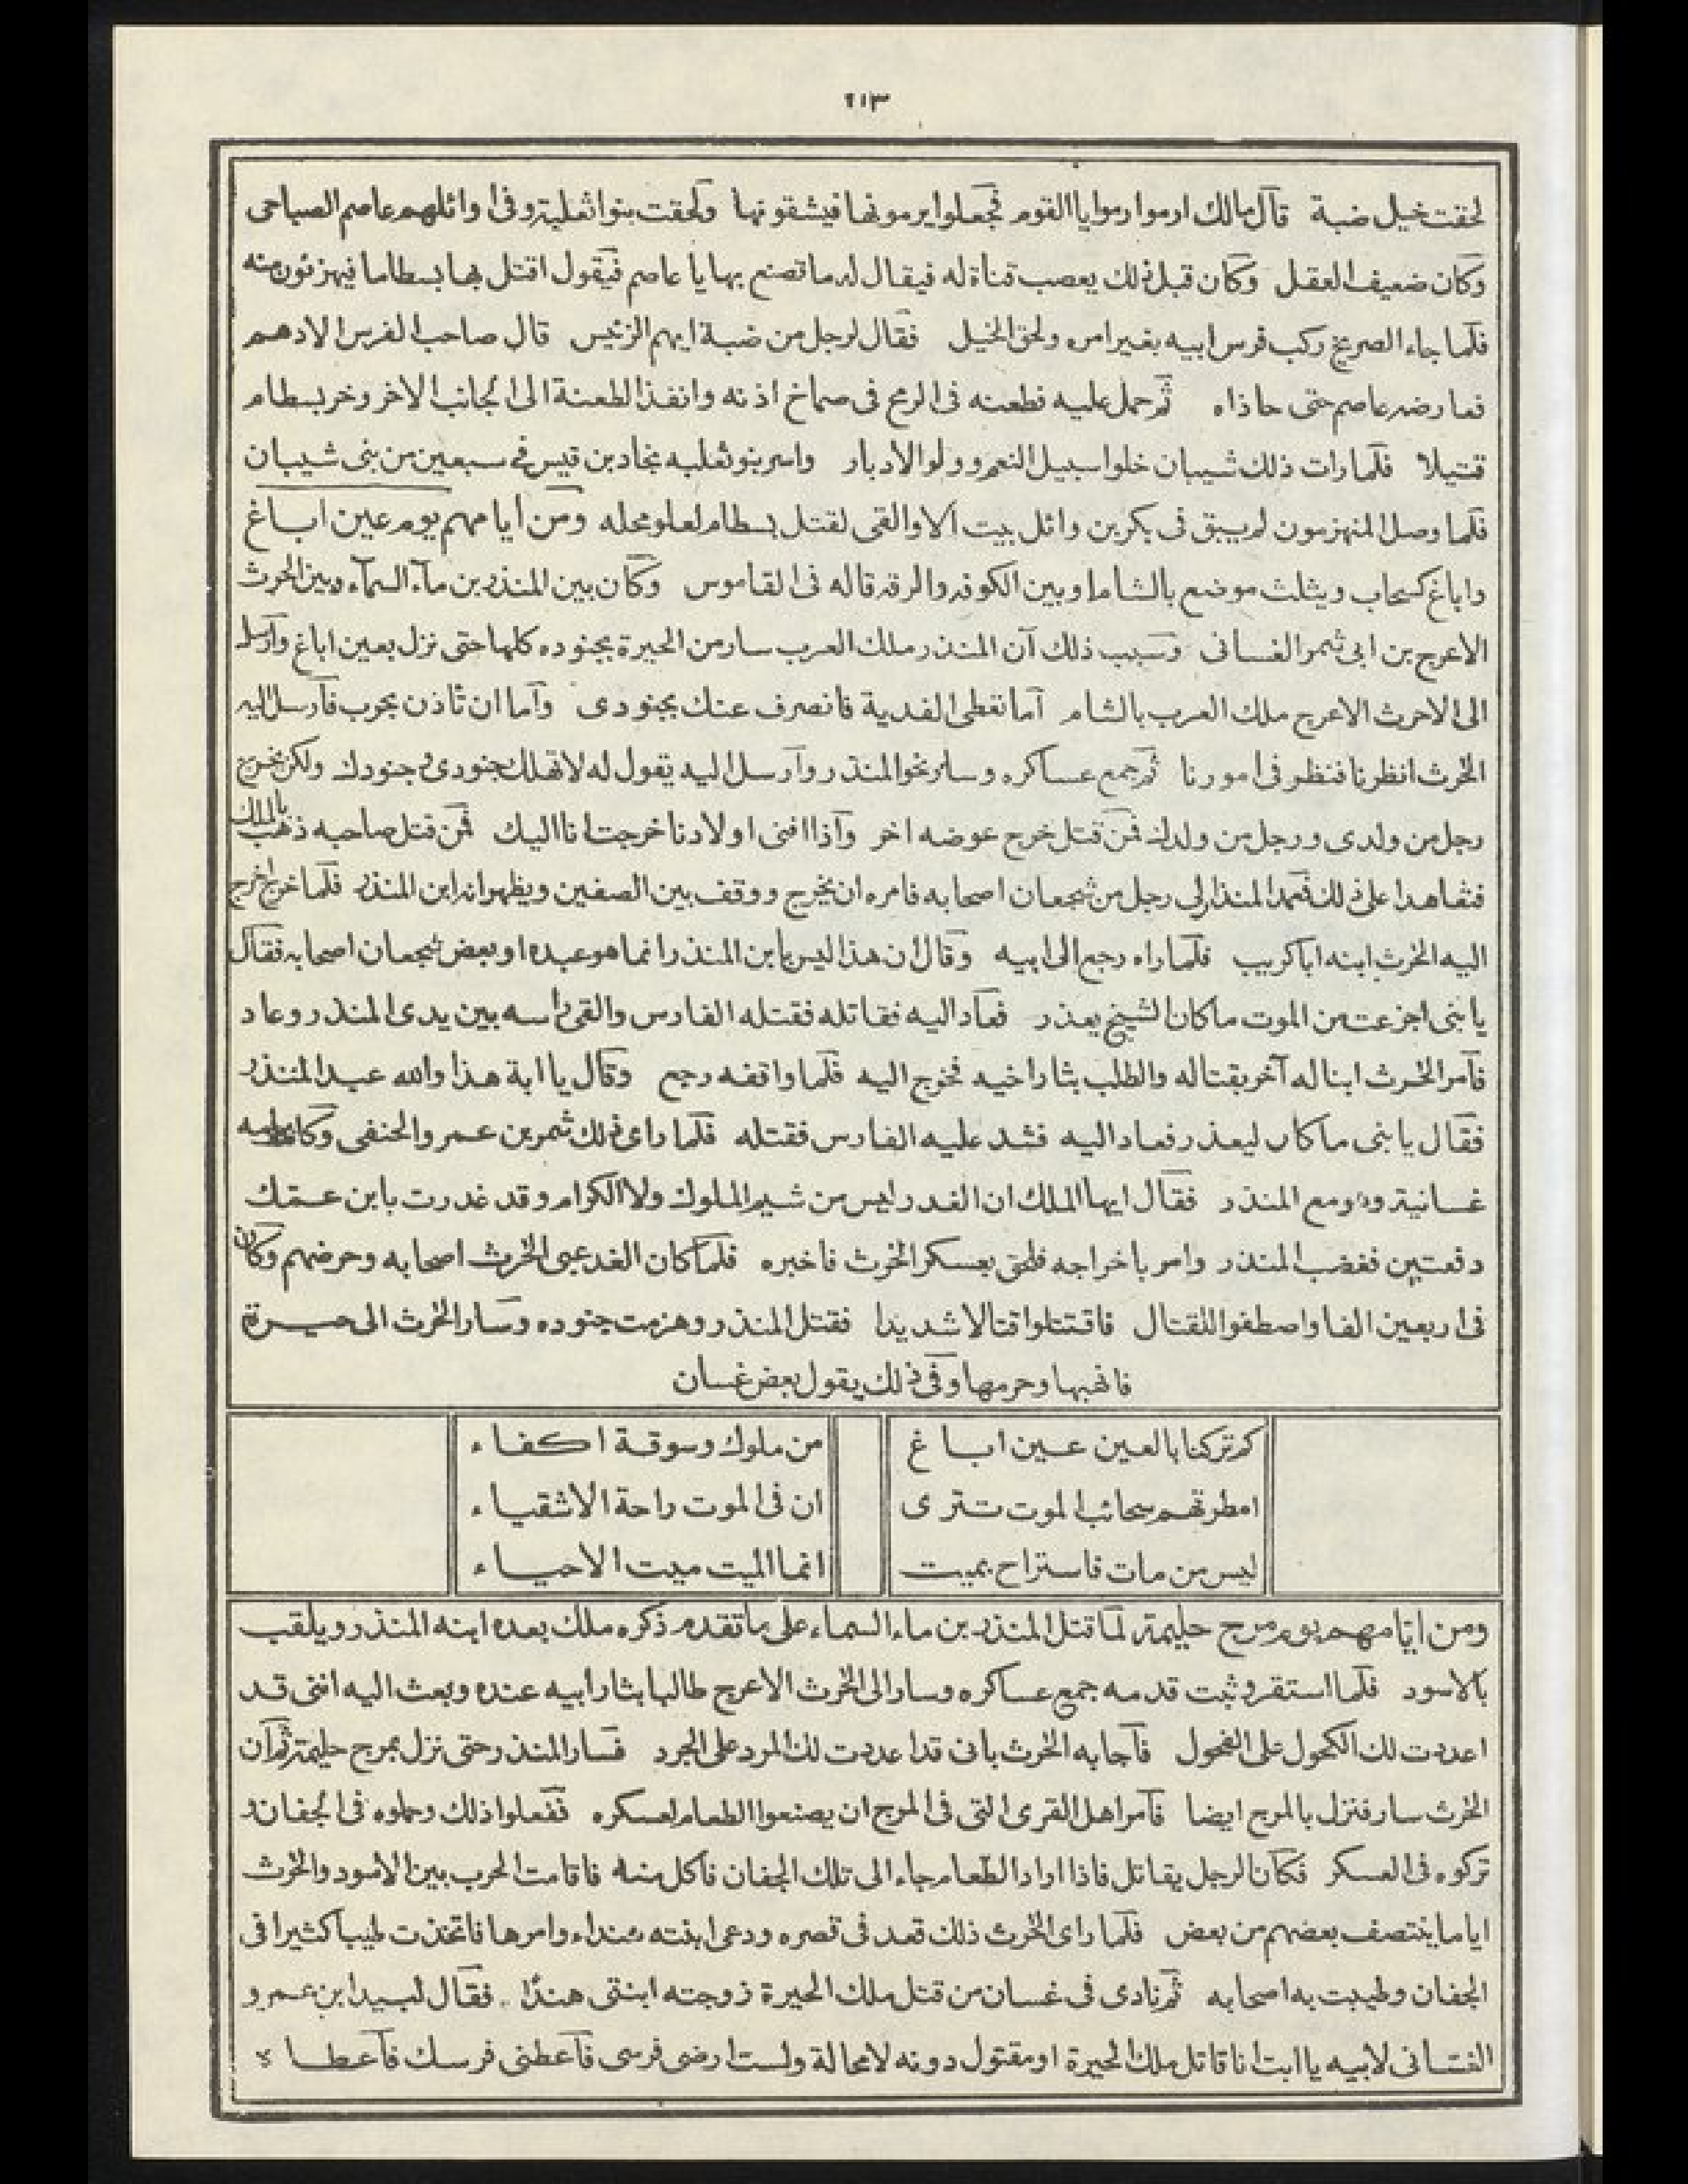 ٢١٣
لحقت خيل ضبة قال مالك ارموا رموايا القوم فجعلوا يرمونها فيشقونها ولحقت بنوا ثعلبة وفى اوائلهم عاصم الصباحى
وكان ضعيف العقل وكان قبل ذلك يعصب قناة له فيقال له ما تصنع بها يا عاصم فيقول اقتل بها بسطاما فيهزئون منه
فلما جاء الصريخ ركب فرس ابيه بغير امره ولحق الخيل فقال لرجل من ضبة ايهم الرئيس قال صاحب الفرس الادهم
فعارضه عاصم حتى حاذاه ثم حمل عليه فطعنه فى الرمح فى صماخ اذنه وانفذ الطعنة الى الجانب الاخر وخر بسطام
قتيلا فلما رات ذلك شيبان خلوا سبيل النعم وولوا الادبار واسر بنو ثعلبه نجاد بن قيس فى سبعين من بنى شيبان
فلما وصل المنهزمون لم يبق فى بكر بن وائل بيت الا والقى لقتل بسطام لعلو محله ومن ايامهم يوم عين اباغ
واباغ كسحاب ويثلث موضع بالشام او بين الكوفه والرقه قاله فى القاموس وكان بين المنذر بن ماء السماء وبين الحرث
الاعرج بن ابى شمر الغسانى وسبب ذلك ان المنذر ملك العرب سار من الحيرة بجنوده كلها حتى نزل بعين اباغ وارسل
الى الاحرث الاعرج ملك العرب بالشام اما تعطى الفدية فانصرف عنك بجنودى واما ان تاذن بحرب فارسل اليه
الحرث انظرنا فننظر فى امورنا ثم جمع عساكره وسار نحو المنذر وارسل اليه يقول له لا تهلك جنودى وجنودك ولكن يخرج
رجل من ولدى ورجل من ولدك فمن قتل خرج عوضه اخر واذا افنى اولادنا خرجت انا اليك فمن قتل صاحبه ذهب بالملك
فتعاهدا على ذلك فعمد المنذر الى رجل من شجعان اصحابه فامره ان يخرج ووقف بين الصفين ويظهر انه ابن المنذر فلما خرج اخرج
اليه الحرث ابنه ابا كريب فلما راه رجع الى ابيه وقال ان هذا ليس بابن المنذر انما هو عبده او بعض شجعان اصحابه فقال
يا بنى اجزعت من الموت ما كان الشيخ يعذر فعاد اليه فقاتله فقتله الفارس والقى راسه بين يدى المنذر وعاد
فامر الحرث ابنا له آخر بقتاله والطلب بثار اخيه فخرج اليه فلما واقفه رجع وقال يا ابة هذا والله عبد المنذر
فقال يا بنى ما كان ليعذر فعاد اليه فشد عليه الفارس فقتله فلما راى ذلك شمر بن عمرو الحنفى وكانت امه
غسانية وهو مع المنذر فقال ايها الملك ان الغدر ليس من شيم الملوك ولا الكرام وقد غدرت بابن عمك
دفعتين فغضب المنذر وامر باخراجه فلحق بعسكر الحرث فاخبره فلما كان الغد عبى الحرث اصحابه وحرضهم وكان
فى اربعين الفا واصطفوا للقتال فاقتتلوا قتالا شديدا فقتل المنذر وهزمت جنوده وسار الحرث الى حيرة
فانهبها وحرمها وفى ذلك يقول بعض غسان
كم تركنا بالعين عين اباغ من ملوك وسوقة اكفاء
امطرتهم سحائب الموت تترى ان فى الموت راحة الاشقياء
ليس من مات فاستراح بميت انما الميت ميت الاحياء
ومن ايامهم يوم مرج حليمة لما قتل المنذر بن ماء السماء على ما تقدم ذكره ملك بعده ابنه المنذر ويلقب
بالاسود فلما استقر وثبت قدمه جمع عساكره وسار الى الحرث الاعرج طالبا بثار ابيه عنده وبعث اليه اننى قد
اعددت لك الكحول على الفحول فاجابه الحرث بانى قد اعددت لك المرد على الجرد فسار المنذر حتى نزل بمرج حليمة ثم ان
الحرث سار فنزل بالمرج ايضا فامر اهل القرى التى فى المرج ان يصنعوا الطعام لعسكره ففعلوا ذلك وحملوه فى الجفان و
تركوه فى العسكر فكان الرجل يقاتل فاذا اراد الطعام جاء الى تلك الجفان فاكل منه فاقامت الحرب بين الاسود والحرث
اياما ينتصف بعضهم من بعض فلما راى الحرث ذلك قعد فى قصره ودعى ابنته هنداء وامرها فاتخذت طيبا كثيرا فى
الجفان وطيبت به اصحابه ثم نادى فى غسان من قتل ملك الحيرة زوجته ابنتى هندا فقال لبيد ابن عمرو
الغسانى لابيه يا ابت انا قاتل ملك الحيرة او مقتول دونه لا محالة ولست ارضى فرسى فاعطنى فرسك فاعطاه